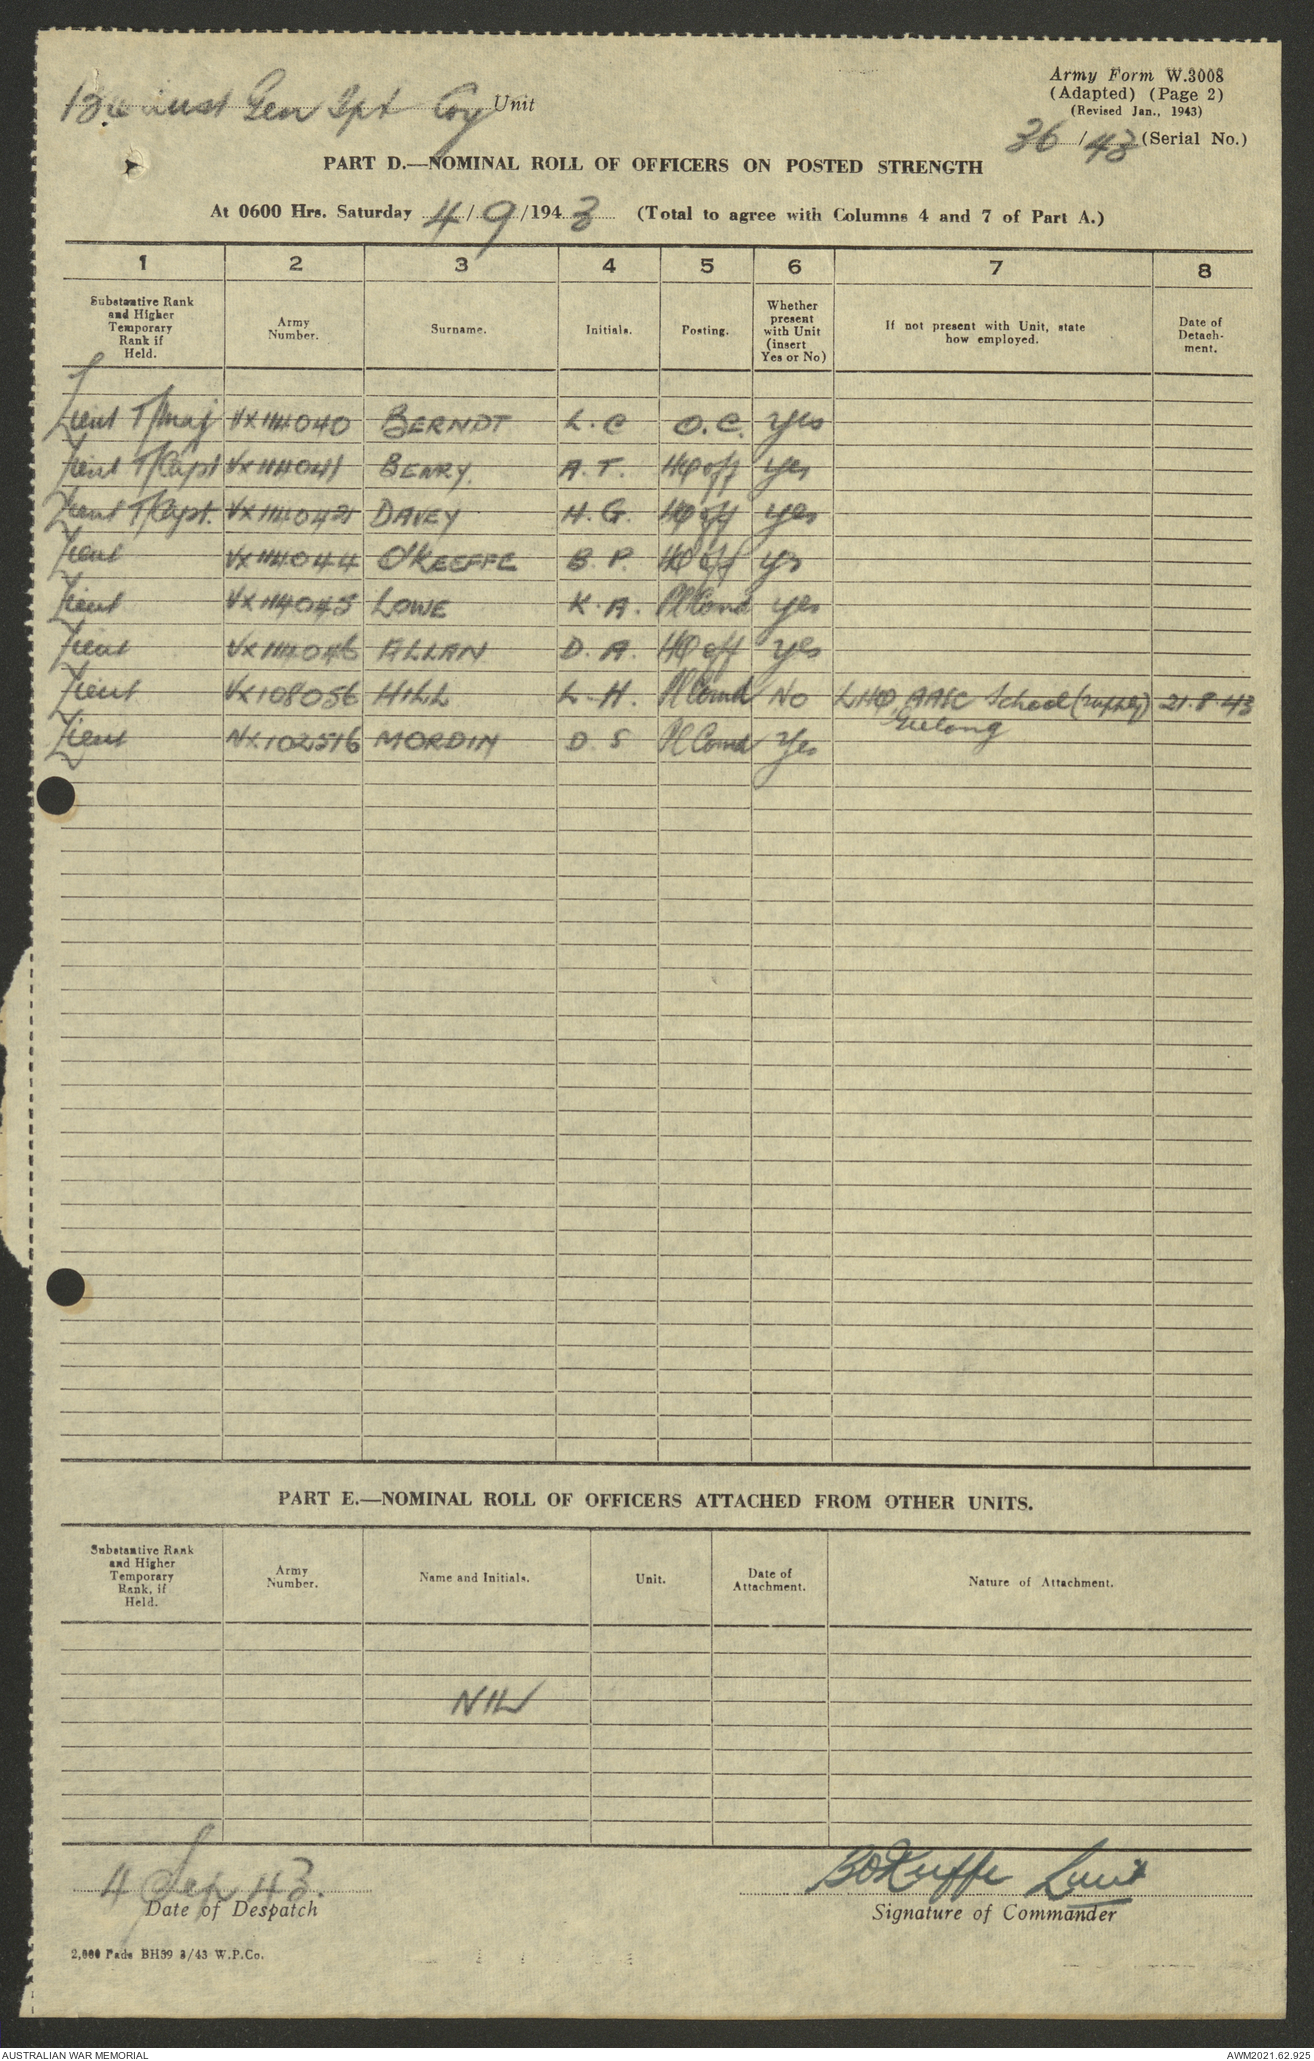 Army Form W.3008
(Adapted) (Page 2)
(Revised Jan., 1943)
Aust Gen Tpt Coy Unit
36/43 (Serial No.)
PART D.—NOMINAL ROLL OF OFFICERS ON POSTED STRENGTH
At 0600 Hrs. Saturday 4/9/1943 (Total to agree with Columns 4 and 7 of Part A.)
1 2 3 4 5 6 7 8
Substantive Rank and Higher Temporary Rank if Held. Army Number. Surname. Initials. Posting. Whether present with Unit (insert Yes or No) If not present with Unit, state how employed. Date of Detach-ment.
Lieut T/Maj VX114040 BERNDT L.C O.C. Yes
Lieut T/Capt VX114041 BENRY. A.T. HQ off Yes
Lieut T/Capt. DAVEY H.G. HQ off Yes
Lieut VX114044 O'KEEFFE B.P. HQ off Ys
Lieut VX114045 LOWE K.A. Pl Comd Yes
Lieut VX114046 ALLAN D.A. HQ off Yes
Lieut VX108056 HILL L.H. Pl Comd No LHQ AASC School (supply) 21.8.43
Geelong
Lieut NX102516 MORDIN D S Pl Comd Yes
PART E.—NOMINAL ROLL OF OFFICERS ATTACHED FROM OTHER UNITS.
Substantive Rank and Higher Temporary Rank, if Held. Army Number. Name and Initials. Unit. Date of Attachment. Nature of Attachment.
NIL
4 Sep 43.
Date of Despatch
BOKeeffe Lieut
Signature of Commander
2,000 Pads BH39 3/43 W.P.Co.
AUSTRALIAN WAR MEMORIAL
AWM2021.62.925